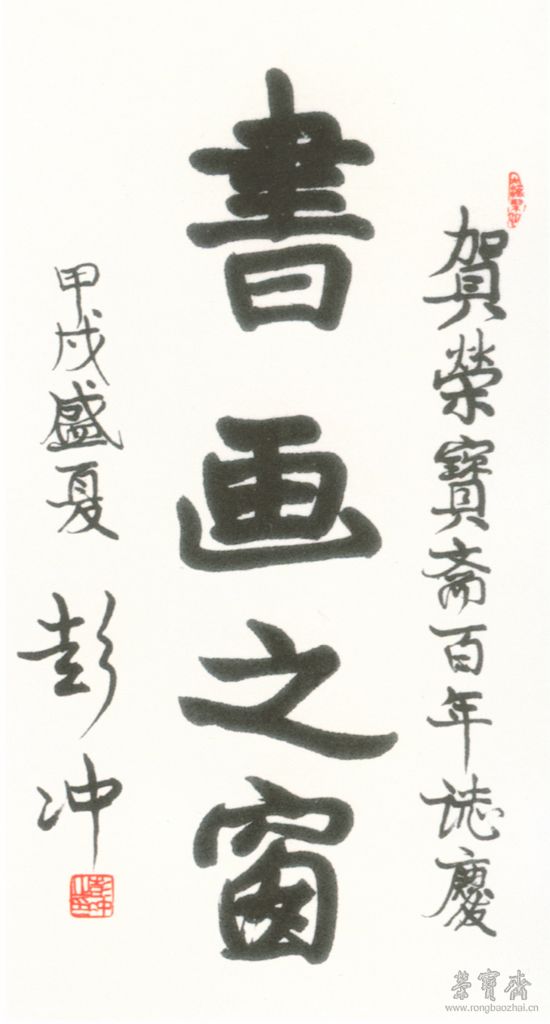 賀榮寶斋百年誌慶
書画之窗
甲戌盛夏
彭冲
榮寶齋
www.rongbaozhai.cn